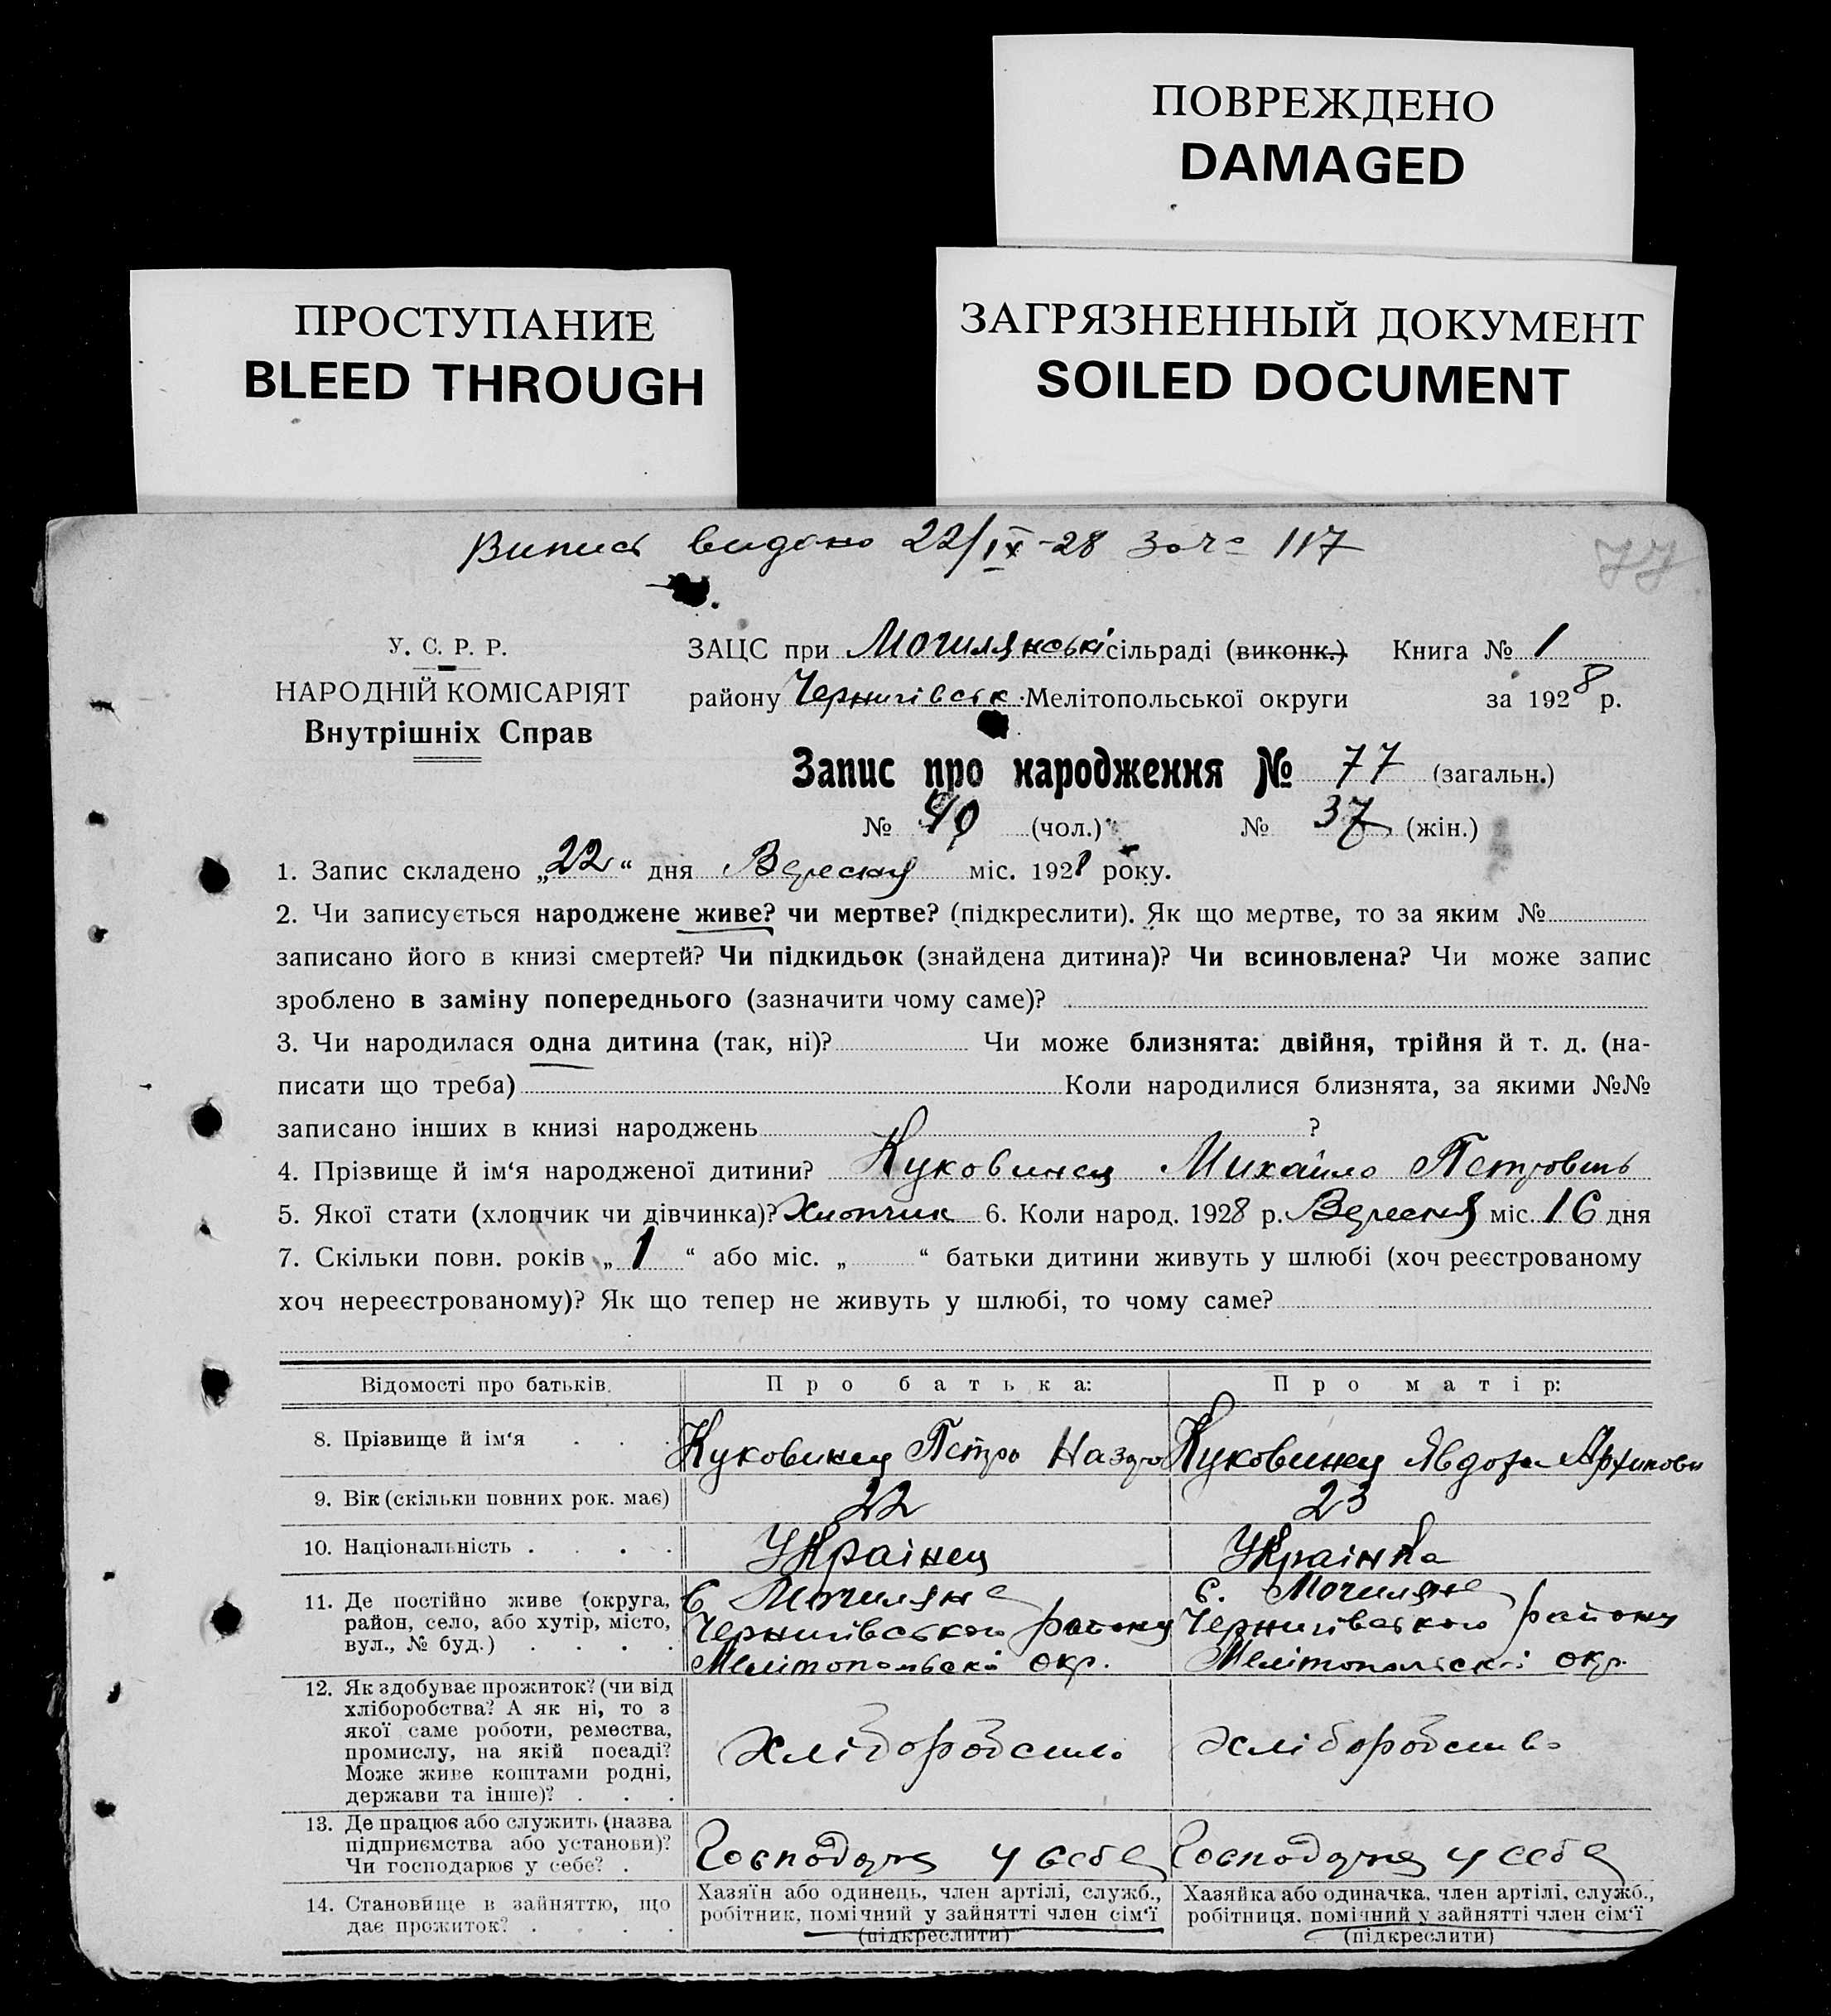 ПОВРЕЖДЕНО
DAMAGED
ПРОСТУПАНИЕ
BLEED THROUGH
ЗАГРЯЗНЕННЫЙ ДОКУМЕНТ
SOILED DOCUMENT
Випись видано 22/IX-28 за че 117
77
У. С. Р. Р.
НАРОДНІЙ КОМІСАРІЯТ
Внутрішніх Справ
ЗАЦС при Могилянські сільраді (виконк.) Книга № 1
району Чернигівськ. Мелітопольської округи за 1928 р.
Запис про народження № 77 (загальн.)
№ 40 (чол.) № 37 (жін.)
1. Запис складено „22“ дня Вересня міс. 1928 року.
2. Чи записується народжене живе? чи мертве? (підкреслити). Як що мертве, то за яким №
записано його в книзі смертей? Чи підкидьок (знайдена дитина)? Чи всиновлена? Чи може запис
зроблено в заміну попереднього (зазначити чому саме)?
3. Чи народилася одна дитина (так, ні)? Чи може близнята: двійня, трійня й т. д. (на-
писати що треба) Коли народилися близнята, за якими №№
записано інших в книзі народжень ?
4. Прізвище й ім‘я народженої дитини? Куковинец Михайло Петровичь
5. Якої стати (хлопчик чи дівчинка)? Хлопчик 6. Коли народ. 1928 р. Вересня міс. 16 дня
7. Скільки повн. років „1“ або міс. „ “ батьки дитини живуть у шлюбі (хоч реєстрованому
хоч нереєстрованому)? Як що тепер не живуть у шлюбі, то чому саме?
Відомості про батьків. Про батька: Про матір:
8. Прізвище й ім‘я Куковинец Петро Куковинец Явдоха
9. Вік (скільки повних рок. має) 22 23
10. Національність Украінец Украінка
11. Де постійно живе (округа, район, село, або хутір, місто, вул., № буд.)
С Могиляне С. Могиляне
Чернигівського району Чернигівського району
Мелітопольскої окр. Мелітопольскої окр.
12. Як здобуває прожиток? (чи від
хліборобства? А як ні, то з
якої саме роботи, ремества,
промислу, на якій посаді?
Може живе коштами родні,
держави та інше)?
Хліборобство Хліборобство
13. Де працює або служить (назва
підприємства або установи)?
Чи господарює у себе?
Господарює у себе Господарює у себе
14. Становище в зайняттю, що
дає прожиток?
Хазяїн або одинець, член артілі, служб.,
робітник, помічний у зайнятті член сім‘ї
(підкреслити)
Хазяйка або одиначка, член артілі, служб.,
робітниця, помічний у зайнятті член сім‘ї
(підкреслити)